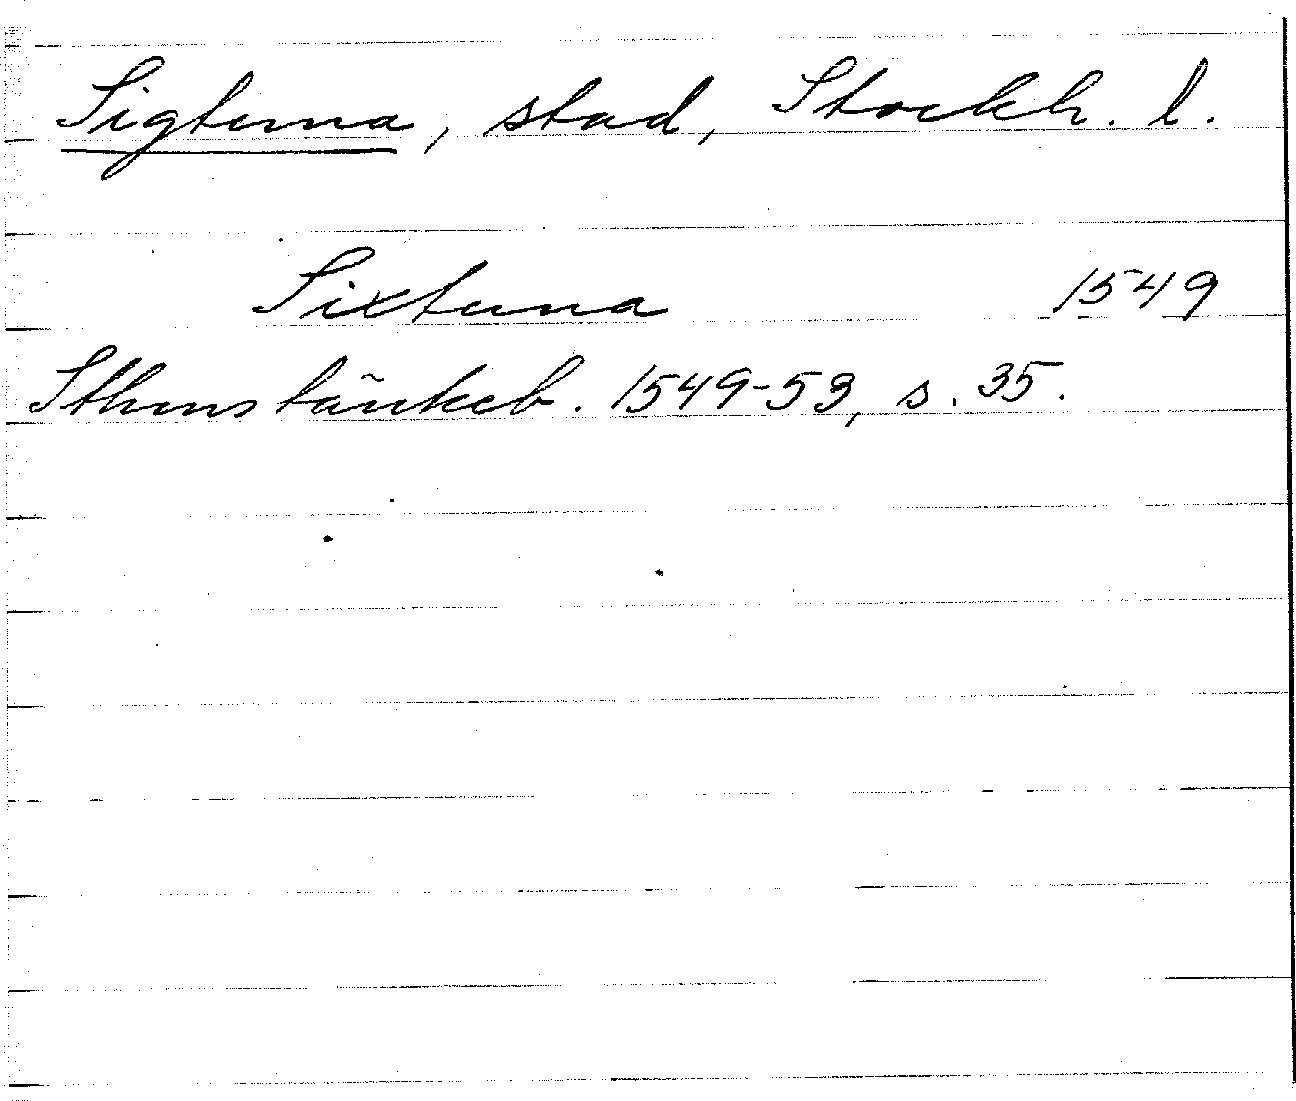 Sigtuna, stad, Stockh. l.
Sixtuna 1549
Sthms tänkeb. 1549-53, s. 35.